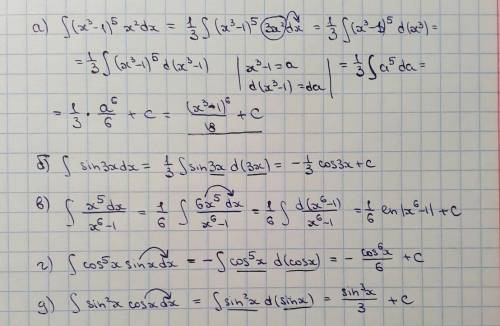 а) ∫(x³-1)⁵ x²dx = 1/3 ∫(x³-1)⁵ 3x²dx = 1/3 ∫(x³-1)⁵ d(x³) =
= 1/3 ∫(x³-1)⁵ d(x³-1) | x³-1=a d(x³-1)=da | = 1/3 ∫a⁵da =
= 1/3 · a⁶/6 + c = (x³-1)⁶/18 + C
б) ∫ sin3xdx = 1/3 ∫ sin3x d(3x) = -1/3 cos3x+c
в) ∫ x⁵dx/x⁶-1 = 1/6 ∫ 6x⁵dx/x⁶-1 = 1/6 ∫ d(x⁶-1)/x⁶-1 = 1/6 ln|x⁶-1| + C
г) ∫cos⁵x sinxdx = -∫cos⁵x d(cosx) = - cos⁶x/6 + C
д) ∫sin²x cosxdx = ∫sin²x d(sinx) = sin³x/3 + C